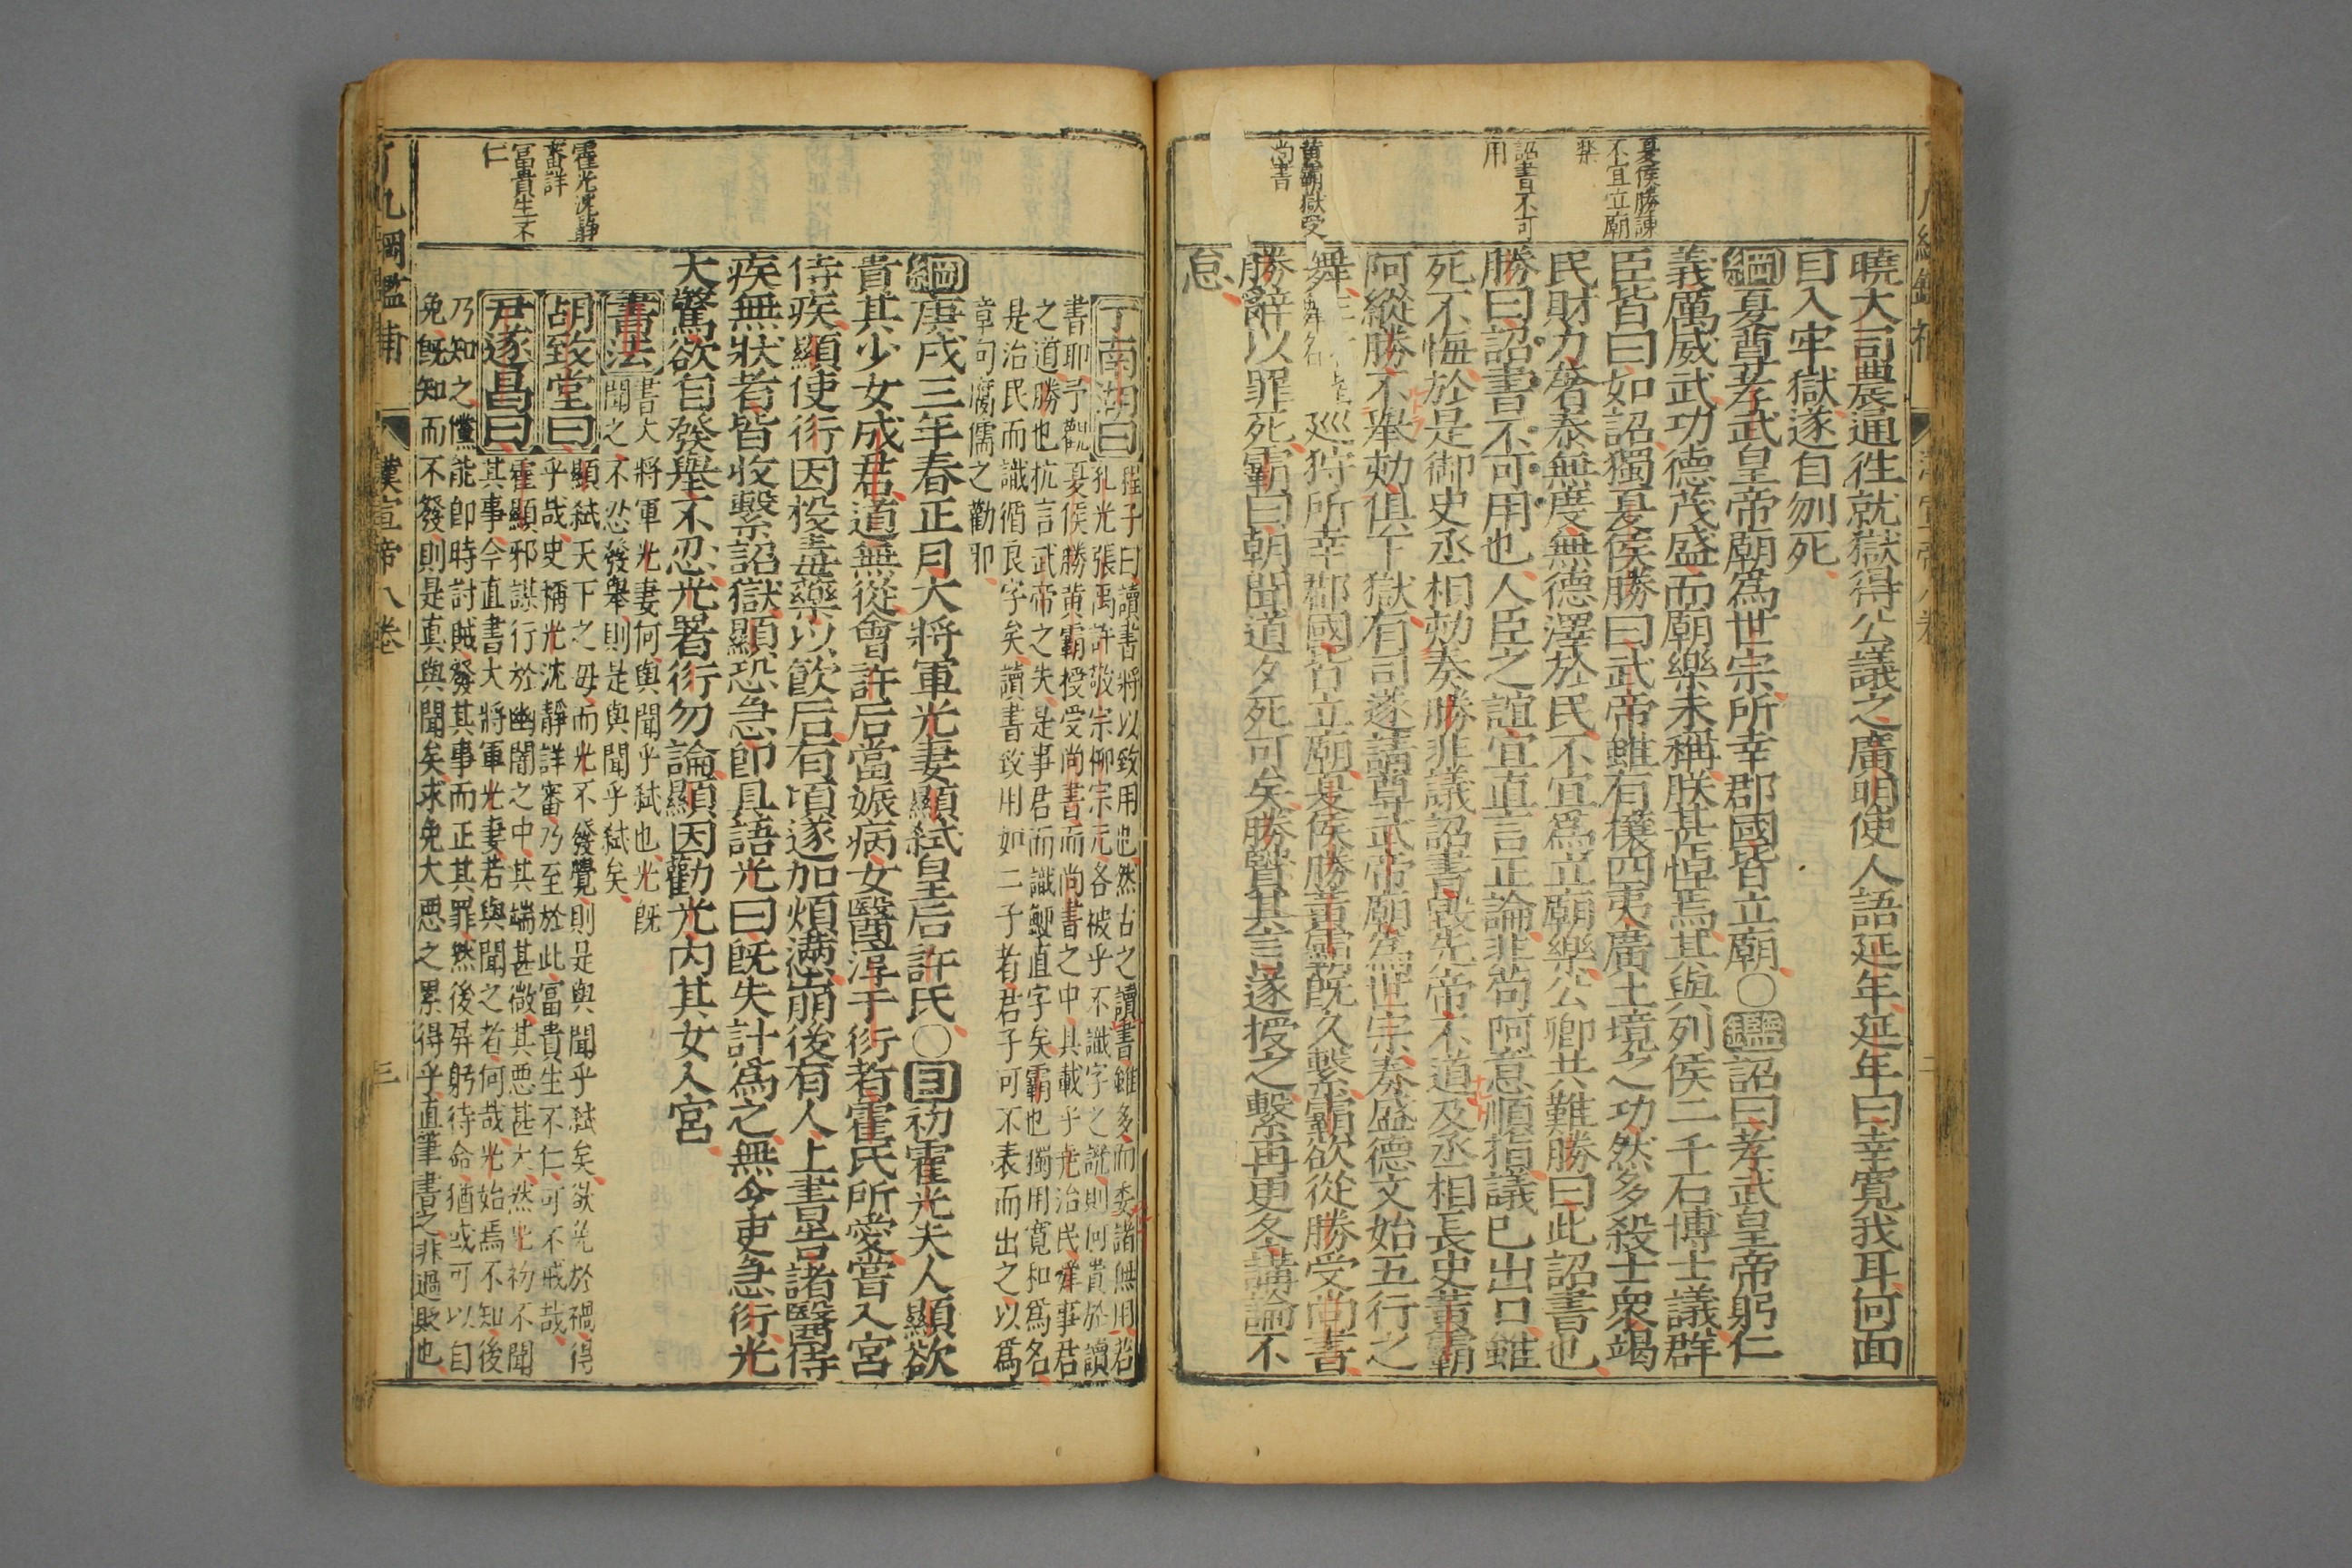 夏侯勝諫
不宜立廟
樂
詔書不可
用
黄霸獄受
尚書
曉大司農通往就獄得公議之廣明使人語延年延年曰幸寬我耳何面
目入牢獄遂自刎死
綱夏尊孝武皇帝廟爲世宗所幸郡國皆立廟○鑑詔曰孝武皇帝躬仁
義厲威武功德茂盛而廟樂未稱朕甚悼焉其與列侯二千石博士議群
臣皆曰如詔獨夏侯勝曰武帝雖有攘四夷廣土境之功然多殺士衆竭
民財力奢泰無度無德澤於民不宜爲立廟樂公卿共難勝曰此詔書也
勝曰詔書不可用也人臣之誼宜直言正論非苟阿意順指議已出口雖
死不悔於是御史丞相劾奏勝非議詔書毀先帝不道及丞相長史黄霸
阿縱勝不舉劾俱下獄有司遂請尊武帝廟爲世宗奏盛德文始五行之
舞巡狩所幸郡國皆立廟夏侯勝黄霸既久繫霸欲從勝受尚書
勝辭以罪死霸曰朝聞道夕死可矣勝賢其言遂授之繫再更冬講論不
怠
丁南湖曰程子曰讀書將以致用也然古之讀書雖多而委諸無用若
孔光張禹許敬宗柳宗元各被乎不識字之譏則何貴於讀
書耶予觀夏侯勝黄霸授受尚書而尚書之中具載乎堯治民舜事君
之道勝也抗言武帝之失是事君而識鯁直字矣霸也獨用寬和爲名
是治民而識循良字矣讀書致用如二子者君子可不表而出之以爲
章句腐儒之勸耶
綱庚戌三年春正月大將軍光妻顯弒皇后許氏○目初霍光夫人顯欲
貴其少女成君道無從會許后當娠病女醫淳于衍者霍氏所愛嘗入宮
侍疾顯使衍因投毒藥以飲后有頃遂加煩懣崩後有人上書告諸醫侍
疾無狀者皆收繫詔獄顯恐急即具語光曰既失計爲之無令吏急衍光
大驚欲自發舉不忍光署衍勿論顯因勸光内其女入宮
書法書大將軍光妻何與聞乎弒也光既
聞之不忍發舉則是與聞乎弒矣
胡致堂曰顯弒天下之母而光不發覺則是與聞乎弒矣欲免於禍得
乎哉史稱光沈靜詳審乃至於此富貴生不仁可不戒哉
尹遂昌曰霍顯邪謀行於幽闇之中其端甚微其惡甚大然光初不聞
其事今直書大將軍光妻若與聞之者何哉光始焉不知後
乃知之儻能即時討賊發其事而正其罪然後屏躬待命猶或可以自
免既知而不發則是真與聞矣求免大惡之累得乎直筆書之非過歟也
霍光沈靜
審詳
富貴生不
仁
綱鑑補
漢宣帝八卷
三